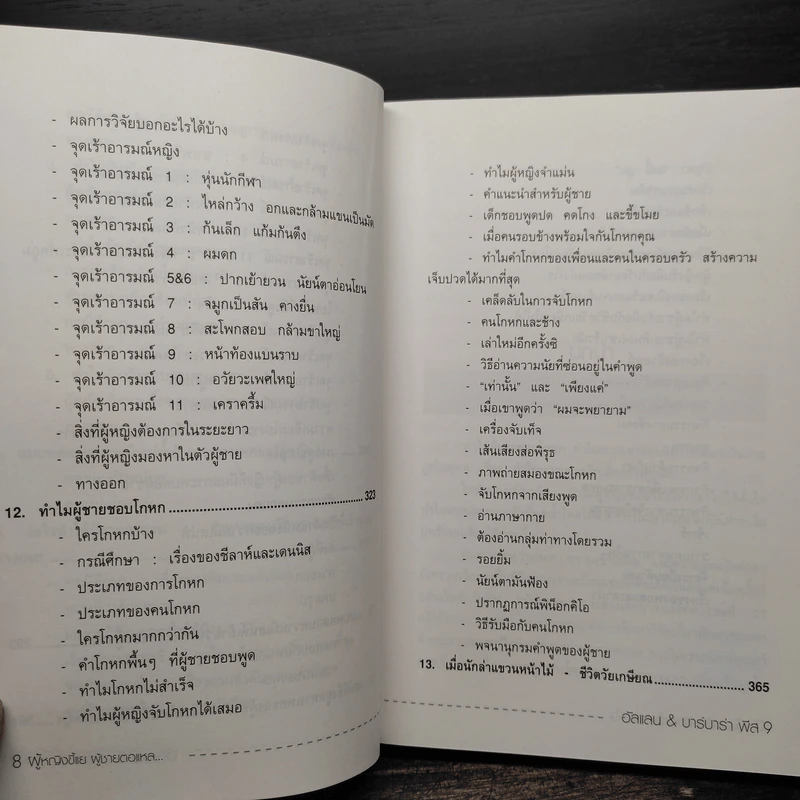 - ผลการวิจัยบอกอะไรได้บ้าง
- จุดเร้าอารมณ์หญิง
- จุดเร้าอารมณ์ 1 : หุ่นนักกีฬา
- จุดเร้าอารมณ์ 2 : ไหล่กว้าง อกและกล้ามแขนเป็นมัด
- จุดเร้าอารมณ์ 3 : ก้นเล็ก แก้มก้นตึง
- จุดเร้าอารมณ์ 4 : ผมดก
- จุดเร้าอารมณ์ 5&6 : ปากเย้ายวน นัยน์ตาอ่อนโยน
- จุดเร้าอารมณ์ 7 : จมูกเป็นสัน คางยื่น
- จุดเร้าอารมณ์ 8 : สะโพกสอบ กล้ามขาใหญ่
- จุดเร้าอารมณ์ 9 : หน้าท้องแบนราบ
- จุดเร้าอารมณ์ 10 : อวัยวะเพศใหญ่
- จุดเร้าอารมณ์ 11 : เคราครึ้ม
- สิ่งที่ผู้หญิงต้องการในระยะยาว
- สิ่งที่ผู้หญิงมองหาในตัวผู้ชาย
- ทางออก
12. ทำไมผู้ชายชอบโกหก ........................................ 323
- ใครโกหกบ้าง
- กรณีศึกษา : เรื่องของชีลาห์และเดนนิส
- ประเภทของการโกหก
- ประเภทของคนโกหก
- ใครโกหกมากกว่ากัน
- คำโกหกพื้นๆ ที่ผู้ชายชอบพูด
- ทำไมโกหกไม่สำเร็จ
- ทำไมผู้หญิงจับโกหกได้เสมอ
8 ผู้หญิงขี้แย ผู้ชายตอแหล...
- ทำไมผู้หญิงจำแม่น
- คำแนะนำสำหรับผู้ชาย
- เด็กชอบพูดปด คดโกง และขี้ขโมย
- เมื่อคนรอบข้างพร้อมใจกันโกหกคุณ
- ทำไมคำโกหกของเพื่อนและคนในครอบครัว สร้างความ
เจ็บปวดได้มากที่สุด
- เคล็ดลับในการจับโกหก
- คนโกหกและช้าง
- เล่าใหม่อีกครั้งซิ
- วิธีอ่านความนัยที่ซ่อนอยู่ในคำพูด
- “เท่านั้น” และ “เพียงแค่”
- เมื่อเขาพูดว่า “ผมจะพยายาม”
- เครื่องจับเท็จ
- เส้นเสียงส่อพิรุธ
- ภาพถ่ายสมองขณะโกหก
- จับโกหกจากเสียงพูด
- อ่านภาษากาย
- ต้องอ่านกลุ่มท่าทางโดยรวม
- รอยยิ้ม
- นัยน์ตามันฟ้อง
- ปรากฏการณ์พิน็อกคิโอ
- วิธีรับมือกับคนโกหก
- พจนานุกรมคำพูดของผู้ชาย
13. เมื่อนักล่าแขวนหน้าไม้ - ชีวิตวัยเกษียณ........................ 365
อัลแลน & บาร์บาร่า พีส 9